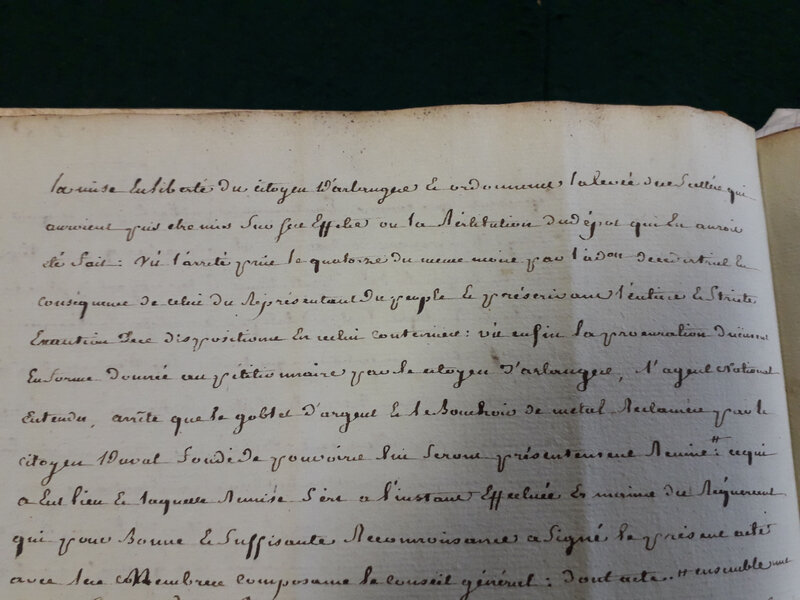 la mise en liberté du citoyen D'arlangere et ordonnent la levée des scellés qui
auroient puis etre mis sur ses Effets ou la Restitution du dépot qui En auroit
été fait : Vû l'arreté pris le quatorze du meme mois par l'adon du district En
conséquence de celui du Représentant du peuple Et préscrivant l'entiere Et Stricte
Exécution Des dispositions En celui contenües : vû enfin la procuration dûement
En forme donnée au pétitionnaire par le citoyen D'arlangere, L'agent National
Entendu, arrête que le goblet d'argent Et le de métal Réclamés par le
citoyen Duval fondé de pouvoirs lui seront présentement Remis # cequi
a Eut lieu Et laquelle Remise s'est a l'instant Effectuée Es mains du Réquerent
qui pour Bonne Et Suffisante Reconnoissance a Signé le présent acte
avec les Membres composants le conseil général : dont acte. # ensemble